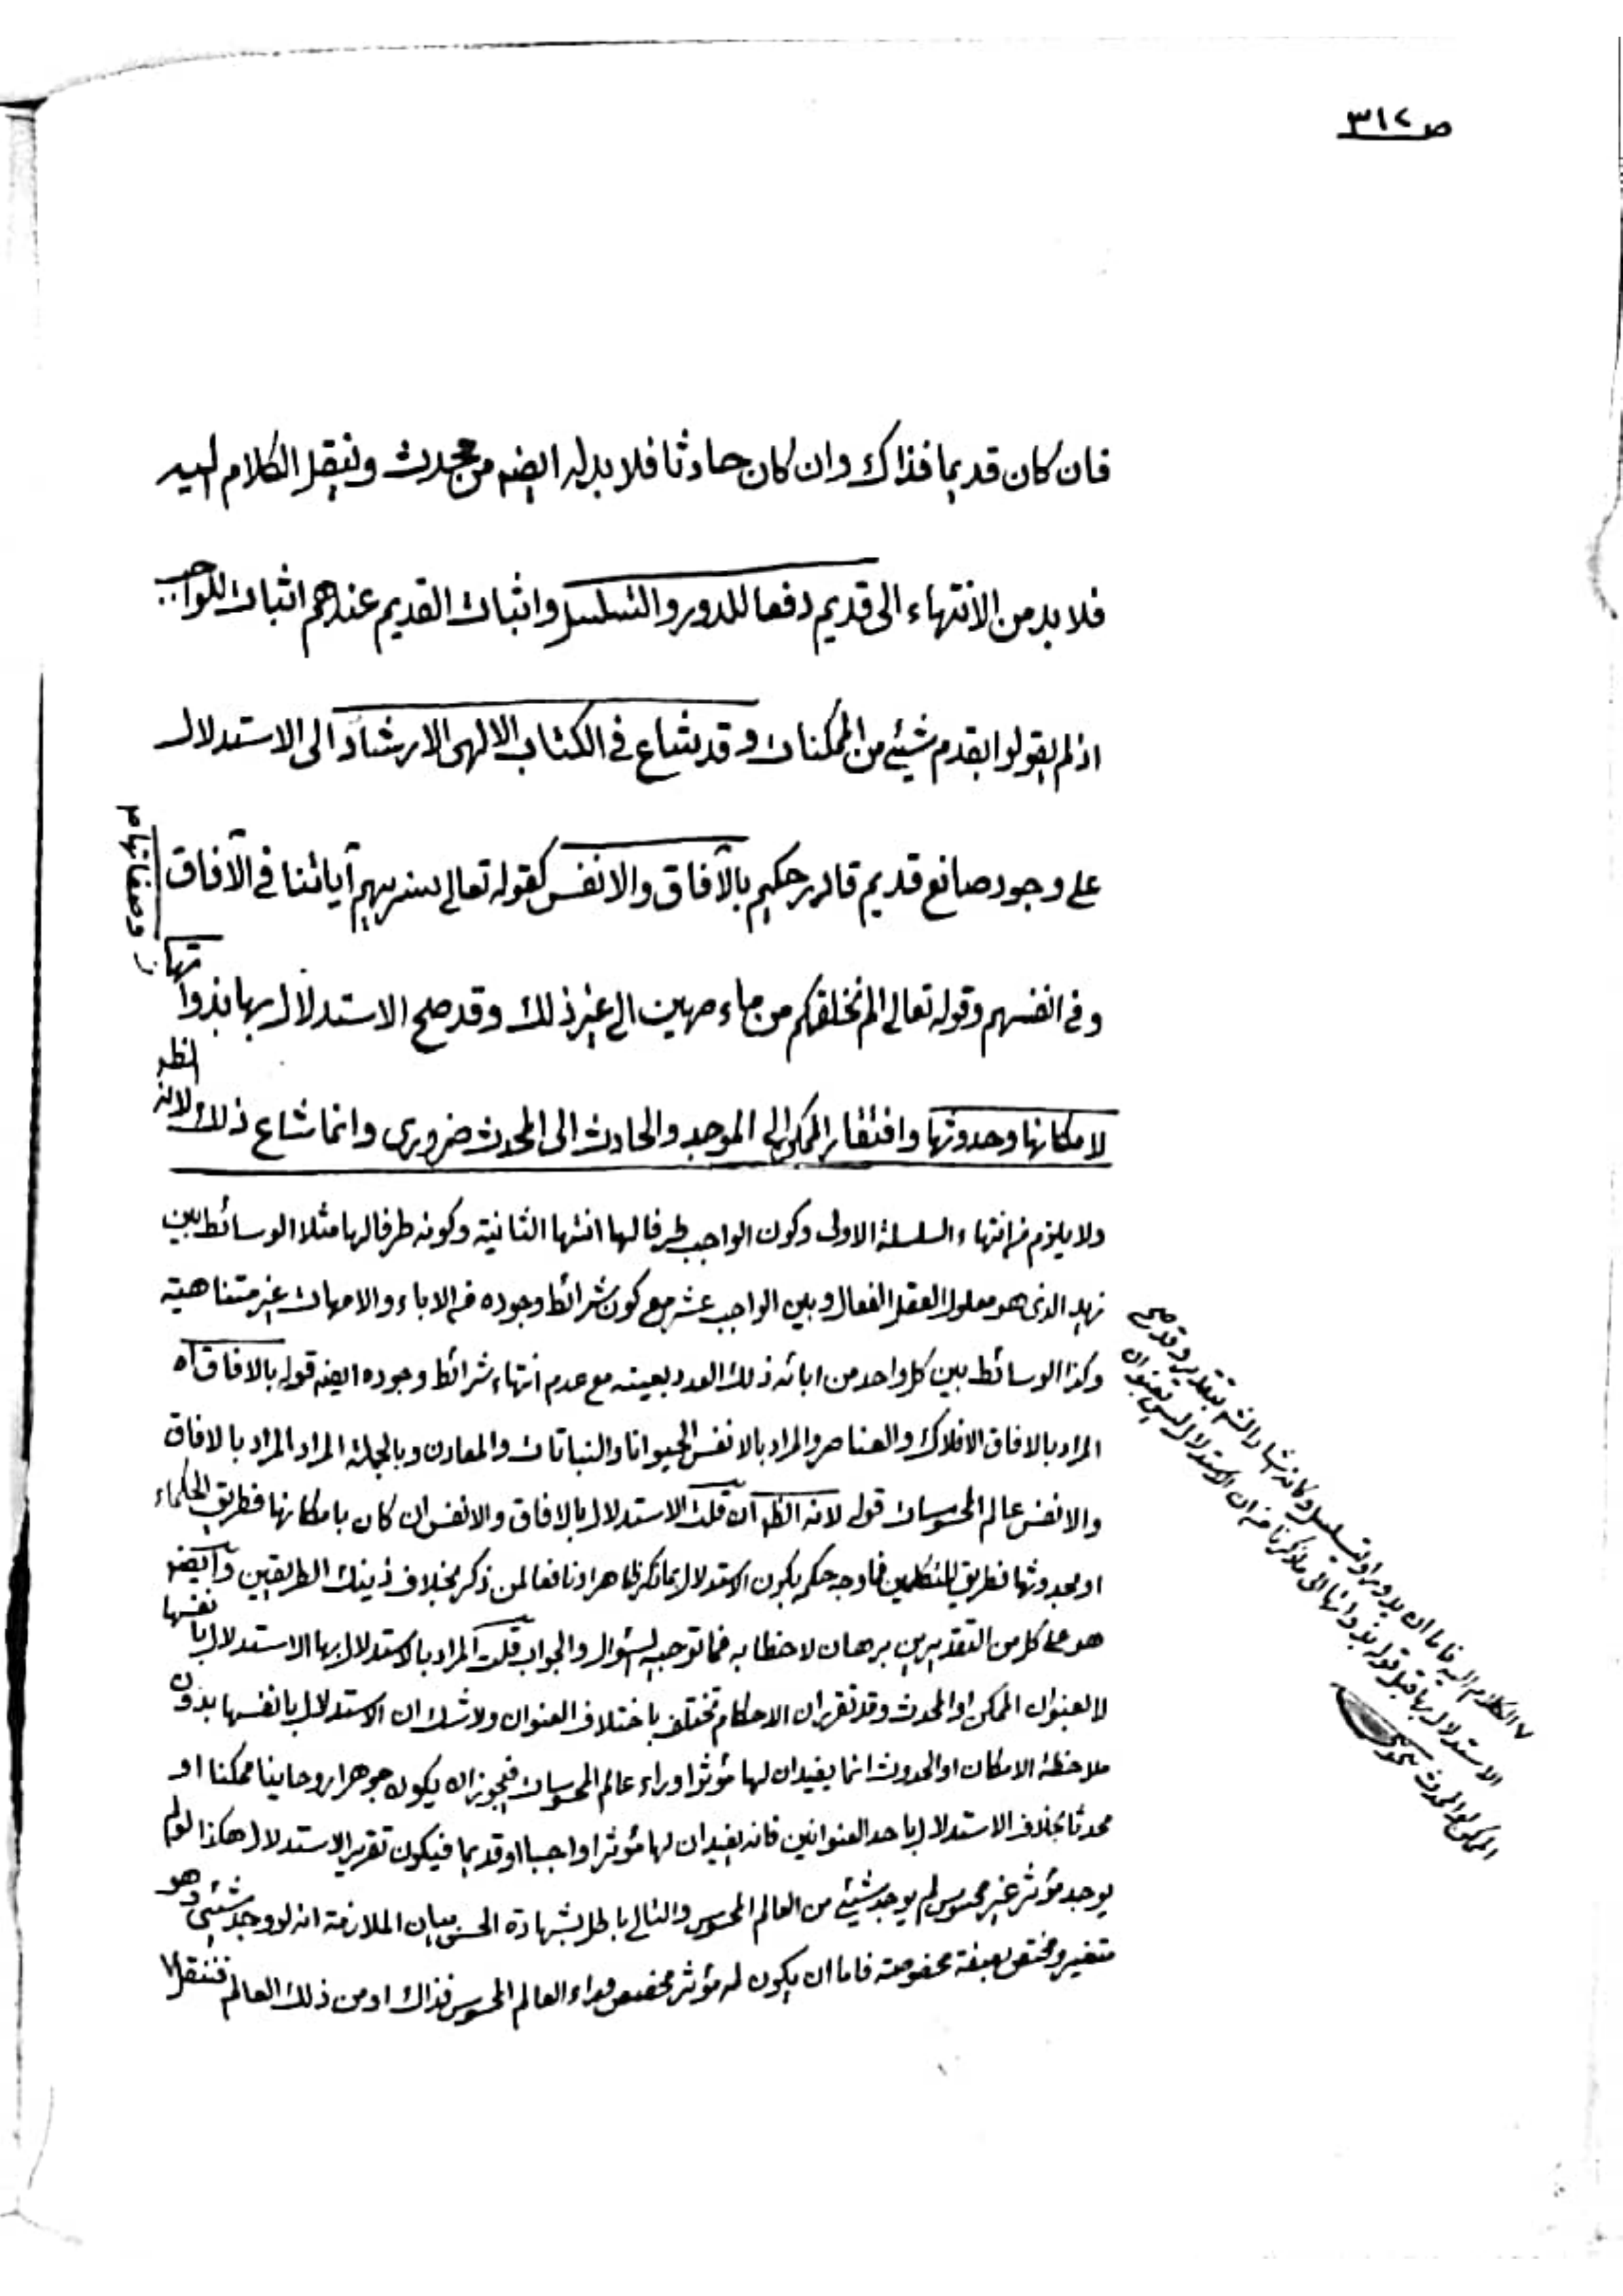 ص ٣١٢
فان كان قديما فذاك وان كان حادثا فلا بد له ايضه من محدث وننقل الكلام اليه
فلا بد من الانتهاء الى قديم دفعا للدور والتسلسل واثبات القديم عندهم اثبات للواجب
اذ لم يقولوا بقدم شيئ من الممكنات وقد شاع فى الكتاب الالهى الارشاد الى الاستدلال
على وجود صانع قديم قادر حكيم بالآفاق والانفس كقوله تعالى سنريهم آياتنا فى الآفاق
وفى انفسهم وقوله تعالى الم نخلقكم من ماء مهين الى غير ذلك وقد صح الاستدلال بها بذواتها
وصفاتها
لامكانها وحدوثها وافتقار الممكن الى الموجد والحادث الى المحدث ضرورى وانما شاع ذلك لانه الظ
ولا يلزم من انتهاء السلسلة الاولى وكون الواجب طرفا لها انتها الثانية وكونه طرفا لها مثلا الوسائط بين
زيد الذى هو معلول العقل الفعال وبين الواجب عشر مع كون شرائط وجوده من الاباء والامهات غير متناهية
وكذا الوسائط بين كل واحد من ابائه ذلك العدد بعينه مع عدم انتهاء شرائط وجوده ايضه قوله بالافاق آه
المراد بالافاق الافلاك والعناصر والمراد بالانفس الحيوانا والنباتات والمعادن وبالجملة المراد المراد بالافاق
والانفس عالم المحسوسات قوله لانه الظ ان قلت الاستدلال بالافاق والانفس ان كان بامكانها فطريق الحكماء
او بحدوثها فطريق المتكلمين فما وجه حكم بكون الاستدلال بما ذكر ظاهرا ونافعا لمن ذكر بخلاف ذينك الطريقين وايضه
هو على كل من التقديرين برهان لا خطابه فما توجيه السئوال والجواب قلت المراد بالاستدلال بها الاستدلال بانفسها
لا بعنوان الممكن او المحدث وقد تقرر ان الاحكام تختلف باختلاف العنوان ولا شك ان الاستدلال بانفسها بدون
ملاحظة الامكان او الحدوث انما يفيد ان لها مؤثرا وراء عالم المحسوسات فيجوز ان يكون جوهرا روحانيا ممكنا او
محدثا بخلاف الاستدلال باحد العنوانين فانه يفيد ان لها مؤثرا واجبا او قديما فيكون تقرير الاستدلال هكذا لو لم
يوجد مؤثر غير محسوس لم يوجد شيئ من العالم المحسوس والتالى باطل بشهادة الحس بيان الملازمة انه لو وجد شيئ وهو
متغير ومختص بصفة مخصوصة فاما ان يكون له مؤثر مخصص وراء العالم المحسوس فذاك او من ذلك العالم فننقل
الكلام اليه فاما ان يدور او يتسلسل وكانه اشار الشه بتقدير وقد صح
الاستدلال بها قبل قوله بذواتها الى ما ذكرنا من ان الاستدلال ليس بعنوان
الممكن او المحدث